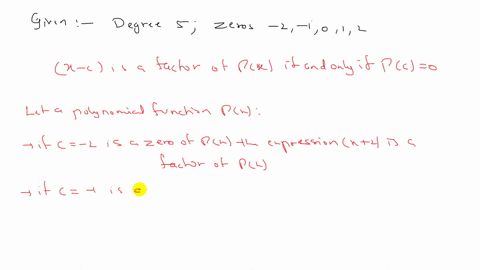 Given :- Degree 5; zeros -2, -1, 0, 1, 2
(x-c) is a factor of P(x) if and only if P(c)=0
Let a polynomial function P(x):
→ if c=-2 is a zero of P(x) the expression (x+2) is a
factor of P(x)
→ if c=-1 is